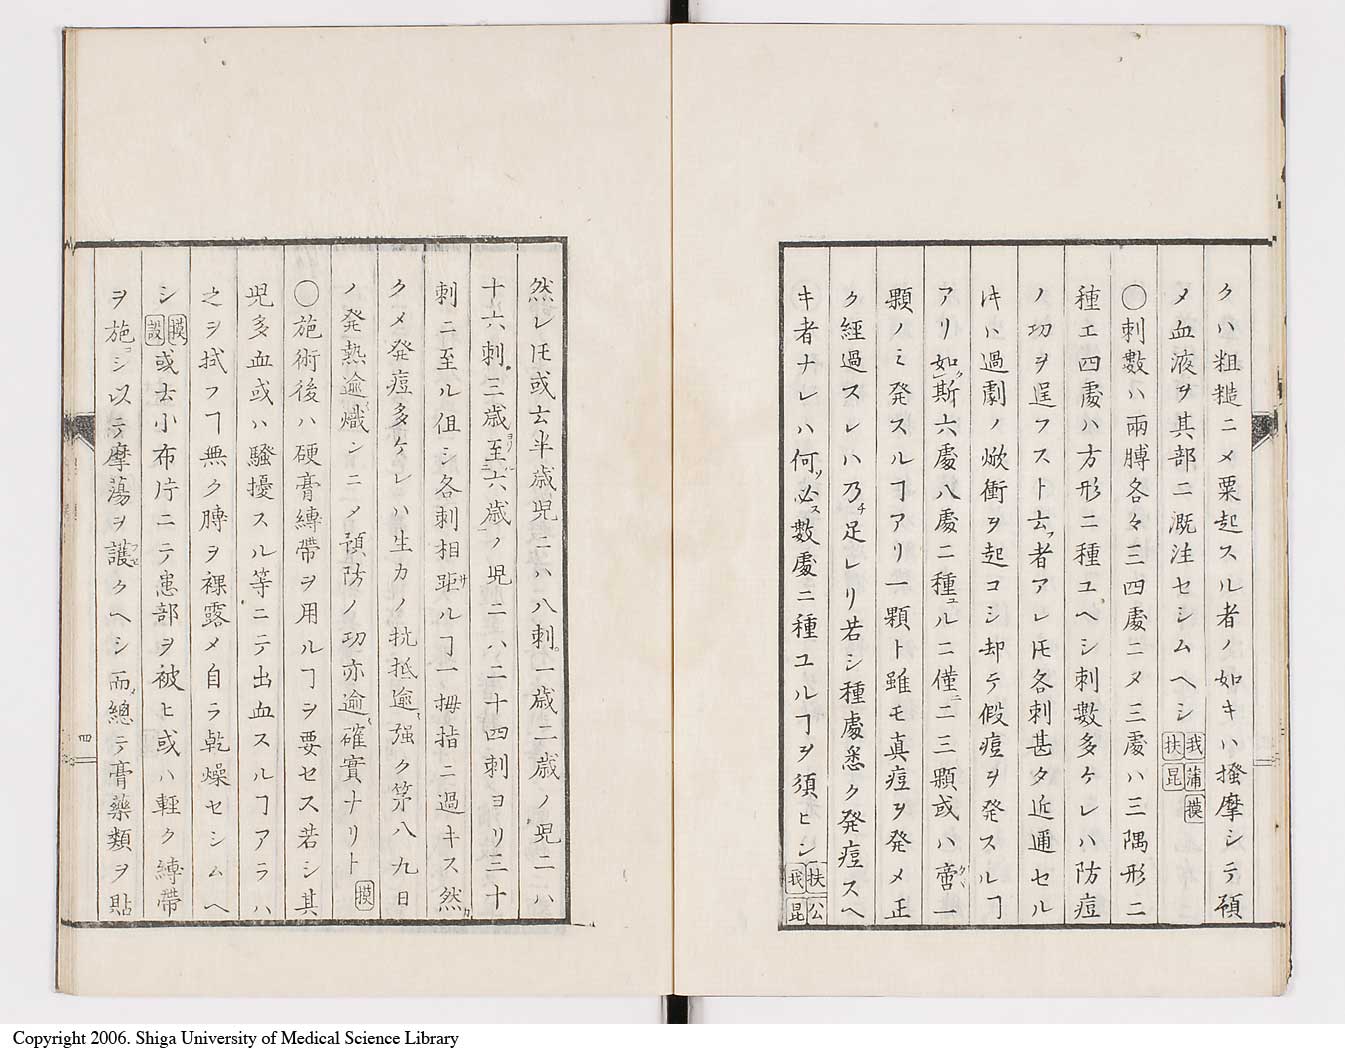 クハ粗糙ニメ粟起スル者ノ如キハ搔摩シテ須
メ血液ヲ其部ニ溉注セシムヘシ我蒲摸扶昆
〇刺數ハ兩膊各々三四處ニメ三處ハ三隅形ニ
種ヱ四處ハ方形ニ種ユヘシ刺數多ケレハ防痘
ノ功ヲ逞フスト云フ者アレ𪜈各刺甚タ近逼セル
𪜈ハ過劇ノ焮衝ヲ起コシ却テ假痘ヲ発スルヿ
アリ如斯ク六處八處ニ種ユルニ僅ニ二三顆或ハ啻タ一
顆ノミ発スルヿアリ一顆ト雖モ真痘ヲ発メ正
ク經過スレハ乃チ足レリ若シ種處悉ク発痘スヘ
キ者ナレハ何ソ必ス數處ニ種ユルヿヲ須ヒン扶公我昆
然レ𪜈或云半歳児ニハ八刺。一歳二歳ノ児ニハ
十六刺。三歳ヨリ至ニ六歳ノ児ニハ二十四刺ヨリ三十
刺ニ至ル伹シ各刺相距ルヿ一拇指ニ過キス然カ
クメ発痘多ケレハ生力ノ抗抵逾〻强ク第八九日
ノ発熱逾〻熾ンニメ預防ノ功亦逾〻確實ナリト摸
〇施術後ハ硬膏縛帶ヲ用ルヿヲ要セス若シ其
児多血或ハ騷擾スル等ニテ出血スルヿアラハ
之ヲ拭フヿ無ク膊ヲ裸露メ自ラ乾燥セシムヘ
シ摸設或云小布片ニテ患部ヲ被ヒ或ハ軽ク縛帶
ヲ施コシ以テ摩蕩ヲ護フセクヘシ而メ總テ膏藥類ヲ貼
四
Copyright 2006. Shiga University of Medical Science Library